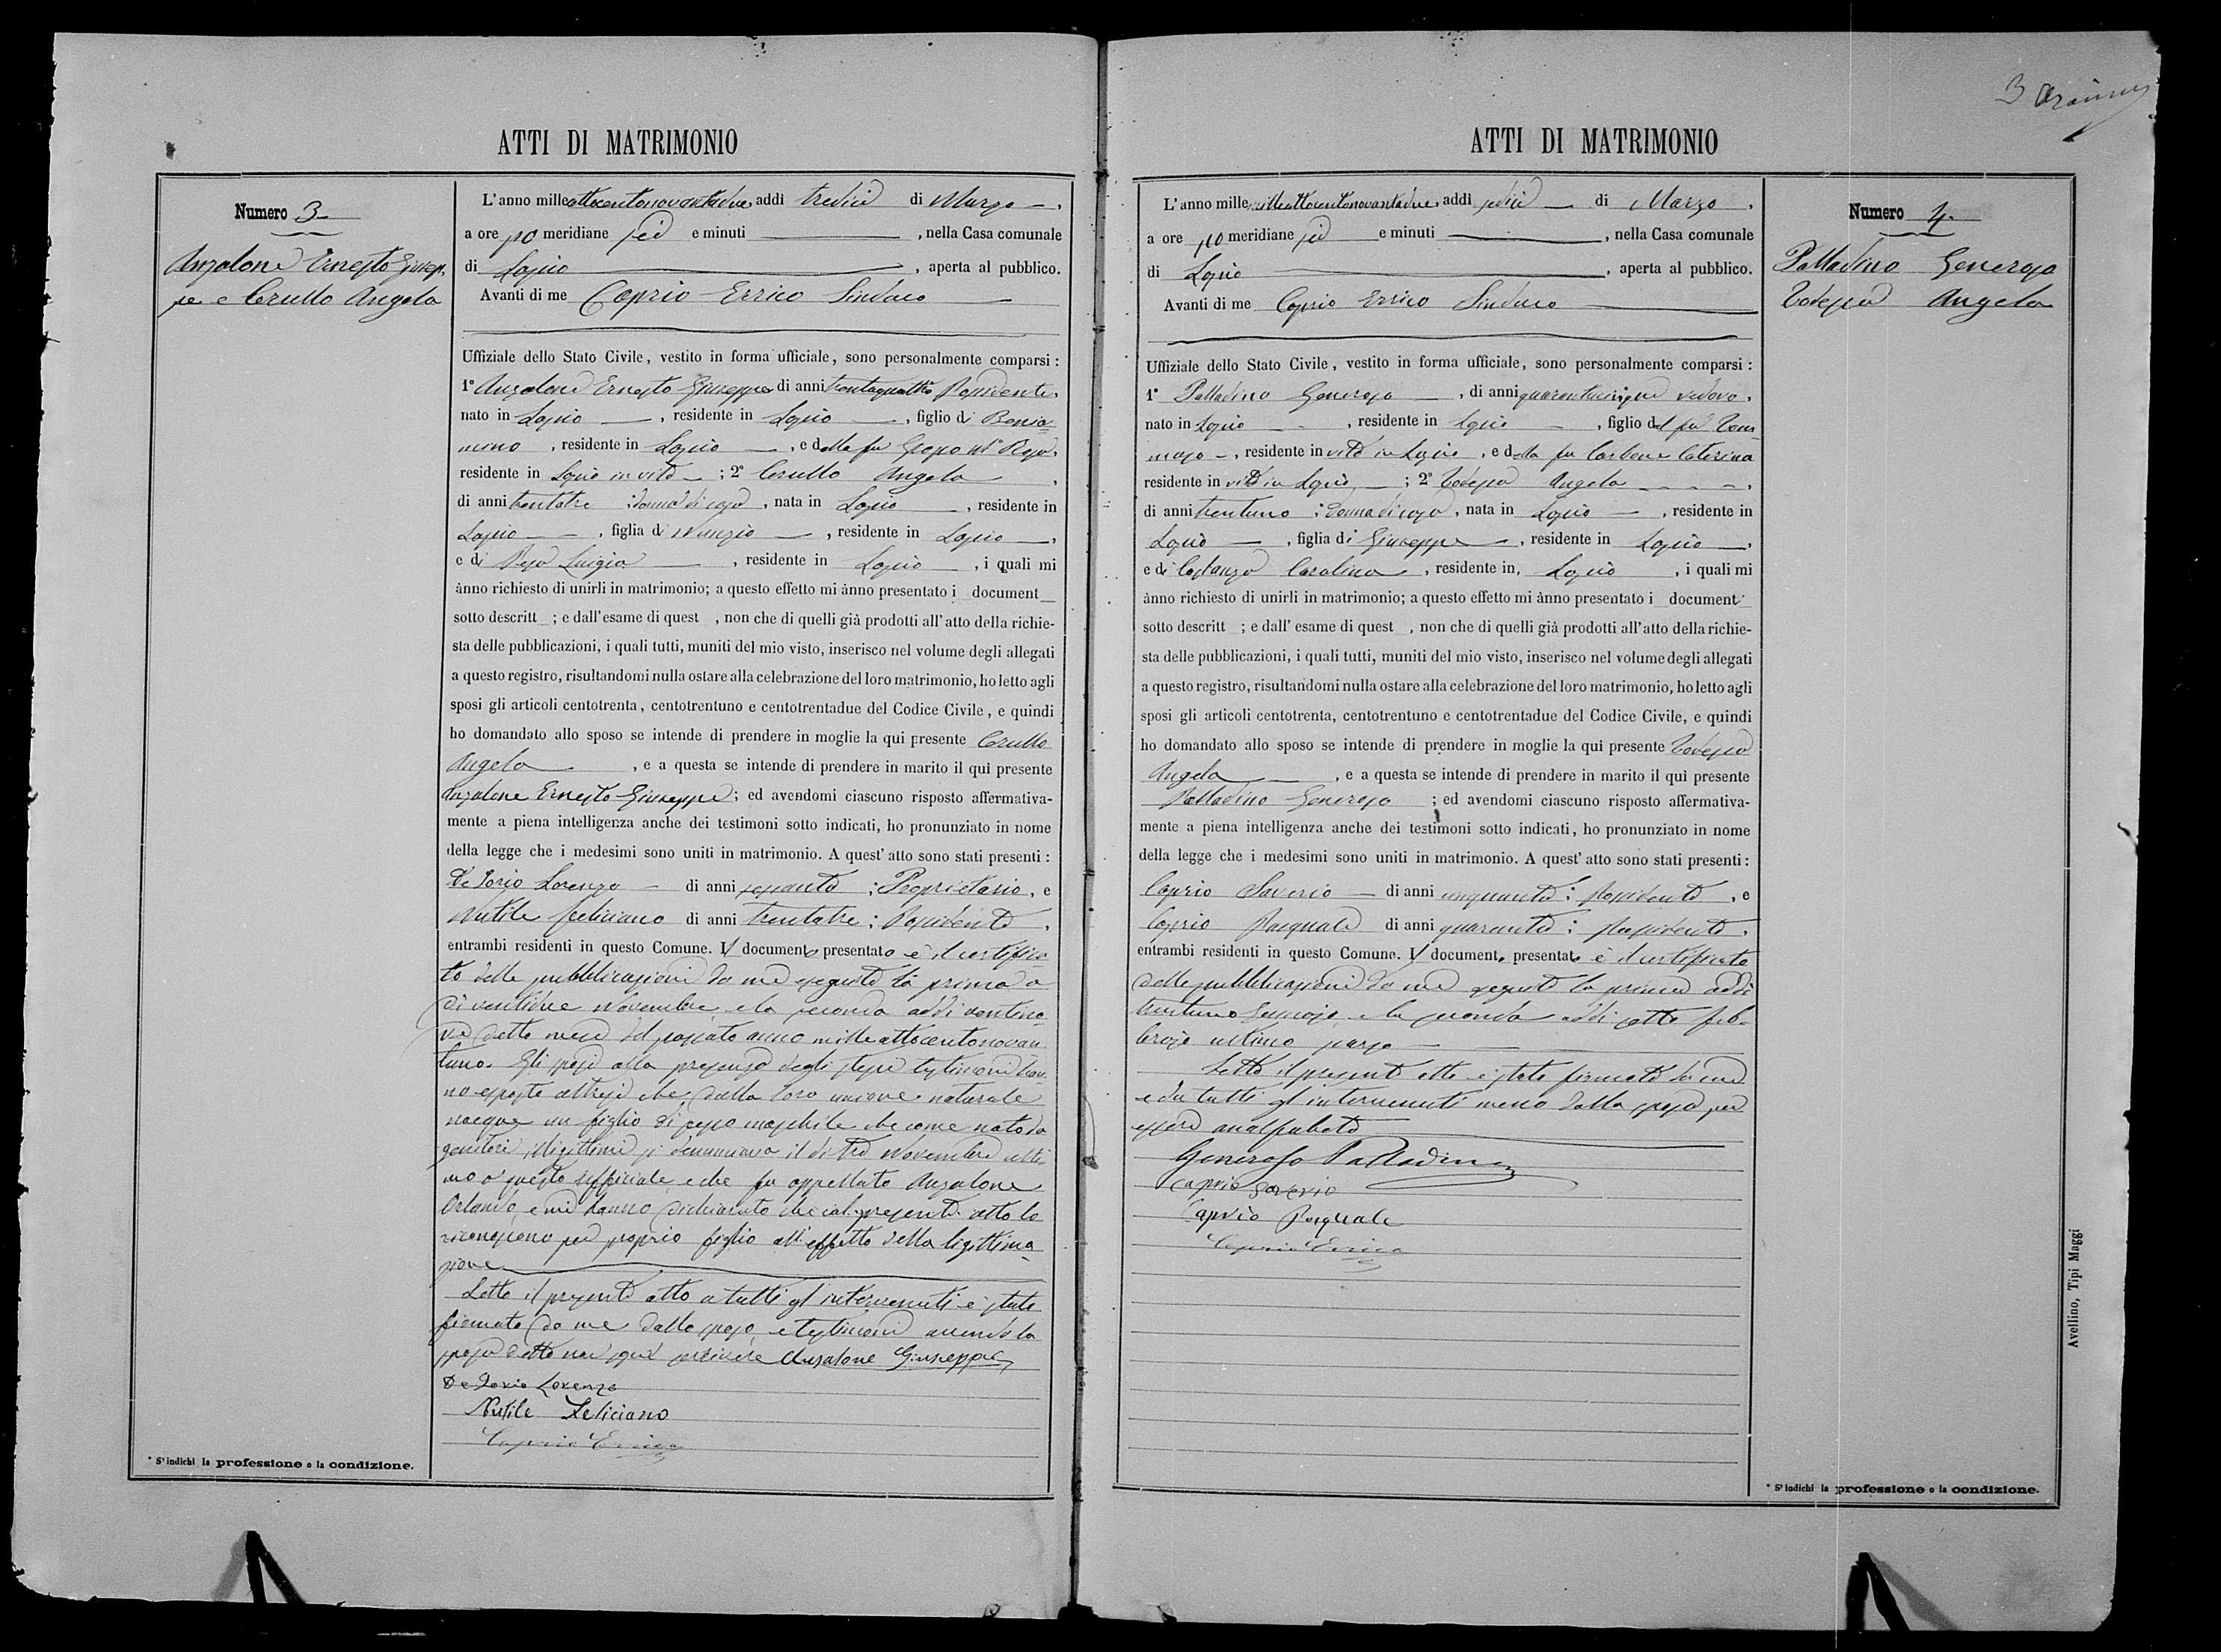 ATTI DI MATRIMONIO
Numero 3
Anzalone Ernesto Giusep-
pe e Cerullo Angela
L'anno milleottocentonovantadue, addi tredici di Marzo,
a ore po meridiane sei e minuti , nella Casa comunale
di Lapio , aperta al pubblico.
Avanti di me Caprio Errico Sindaco
Uffiziale dello Stato Civile, vestito in forma ufficiale, sono personalmente comparsi:
1° Anzalone Ernesto Giuseppe, di anni trentaquattro Possidente,
nato in Lapio , residente in Lapio , figlio di Benia-
mino , residente in Lapio , e della fu
residente in Lapio in vita ; 2° Cerullo Angela ,
di anni trentatre ; donna di casa , nata in Lapio , residente in
Lapio , figlia di Nunzio , residente in Lapio ,
e di Luigia , residente in Lapio , i quali mi
ànno richiesto di unirli in matrimonio; a questo effetto mi ànno presentato i document
sotto descritt ; e dall'esame di quest , non che di quelli già prodotti all'atto della richie-
sta delle pubblicazioni, i quali tutti, muniti del mio visto, inserisco nel volume degli allegati
a questo registro, risultandomi nulla ostare alla celebrazione del loro matrimonio, ho letto agli
sposi gli articoli centotrenta, centotrentuno e centotrentadue del Codice Civile, e quindi
ho domandato allo sposo se intende di prendere in moglie la qui presente Cerullo
Angela , e a questa se intende di prendere in marito il qui presente
Anzalone Ernesto Giuseppe ; ed avendomi ciascuno risposto affermativa-
mente a piena intelligenza anche dei testimoni sotto indicati, ho pronunziato in nome
della legge che i medesimi sono uniti in matrimonio. A quest'atto sono stati presenti:
De Iorio Lorenzo di anni sessanta ; Proprietario , e
Nutile Feliciano di anni trentatre ; Possidente ,
entrambi residenti in questo Comune. Il documento presentato è il certifica-
to delle pubblicazioni da me eseguite la prima a
di ventidue Novembre e la seconda addi ventino-
ve detto mese del passato anno milleottocentonovan-
tuno. Gli sposi alla presenza degli stessi testimoni han-
no esposto altresì che dalla loro unione naturale
nacque un figlio di sesso maschile che come nato da
genitori illegittimi si denunciava il dì tre Novembre ulti-
mo a questo ufficiale, e che fu appellato Anzalone
Orlando, e mi hanno dichiarato che col presente atto lo
riconoscono per proprio figlio all'effetto della ligittima-
zione
Letto il presente atto a tutti gl'intervenuti è stato
firmato da me dallo sposo, e testimoni avendo la
sposa detto non saper scrivere Anzalone Giuseppe
De Iorio Lorenzo
Nutile Feliciano
Caprio Errico
* S'indichi la professione o la condizione.
3
ATTI DI MATRIMONIO
Numero 4
Palladino Generoso
Angela
L'anno mille milleottocentonovantadue, addi sedici di Marzo,
a ore po meridiane sei e minuti , nella Casa comunale
di Lapio , aperta al pubblico.
Avanti di me Caprio Errico Sindaco
Uffiziale dello Stato Civile, vestito in forma ufficiale, sono personalmente comparsi:
1° Palladino Generoso , di anni quarantacinque vedovo,
nato in Lapio , residente in Lapio , figlio del fu Tom-
maso , residente in vita in Lapio , e della fu Carbone Caterina
residente in vita in Lapio ; 2° Angela ,
di anni trentuno ; donna di casa , nata in Lapio , residente in
Lapio , figlia di Giuseppe , residente in Lapio ,
e di Costanzo Carolina , residente in Lapio , i quali mi
ànno richiesto di unirli in matrimonio; a questo effetto mi ànno presentato i document
sotto descritt ; e dall'esame di quest , non che di quelli già prodotti all'atto della richie-
sta delle pubblicazioni, i quali tutti, muniti del mio visto, inserisco nel volume degli allegati
a questo registro, risultandomi nulla ostare alla celebrazione del loro matrimonio, ho letto agli
sposi gli articoli centotrenta, centotrentuno e centotrentadue del Codice Civile, e quindi
ho domandato allo sposo se intende di prendere in moglie la qui presente
Angela , e a questa se intende di prendere in marito il qui presente
Palladino Generoso ; ed avendomi ciascuno risposto affermativa-
mente a piena intelligenza anche dei testimoni sotto indicati, ho pronunziato in nome
della legge che i medesimi sono uniti in matrimonio. A quest'atto sono stati presenti:
Caprio Saverio di anni cinquanta ; Possidente , e
Caprio Pasquale di anni quaranta ; Possidente ,
entrambi residenti in questo Comune. Il documento presentato è il certificato
delle pubblicazioni da me eseguite la prima addì
trentuno Gennajo, e la seconda addì sette feb-
brajo ultimo scorso
Letto il presente atto è stato firmato da me
e da tutti gl'intervenuti meno dalla sposa per
essere analfabeta
Generoso Palladino
Caprio Saverio
Caprio Pasquale
Caprio Errico
* S'indichi la professione o la condizione.
Avellino, Tipi Maggi